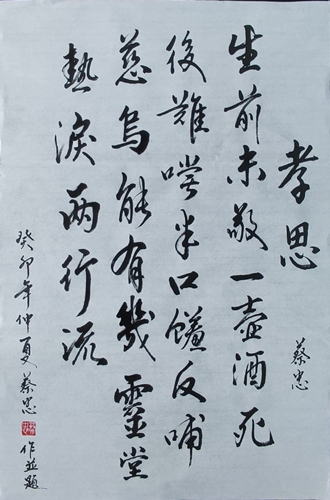 孝思
蔡忠
生前未敬一壶酒死
後難嘗半口饈反哺
慈烏能有幾靈堂
熱淚两行流
癸卯年仲夏蔡忠
作並題